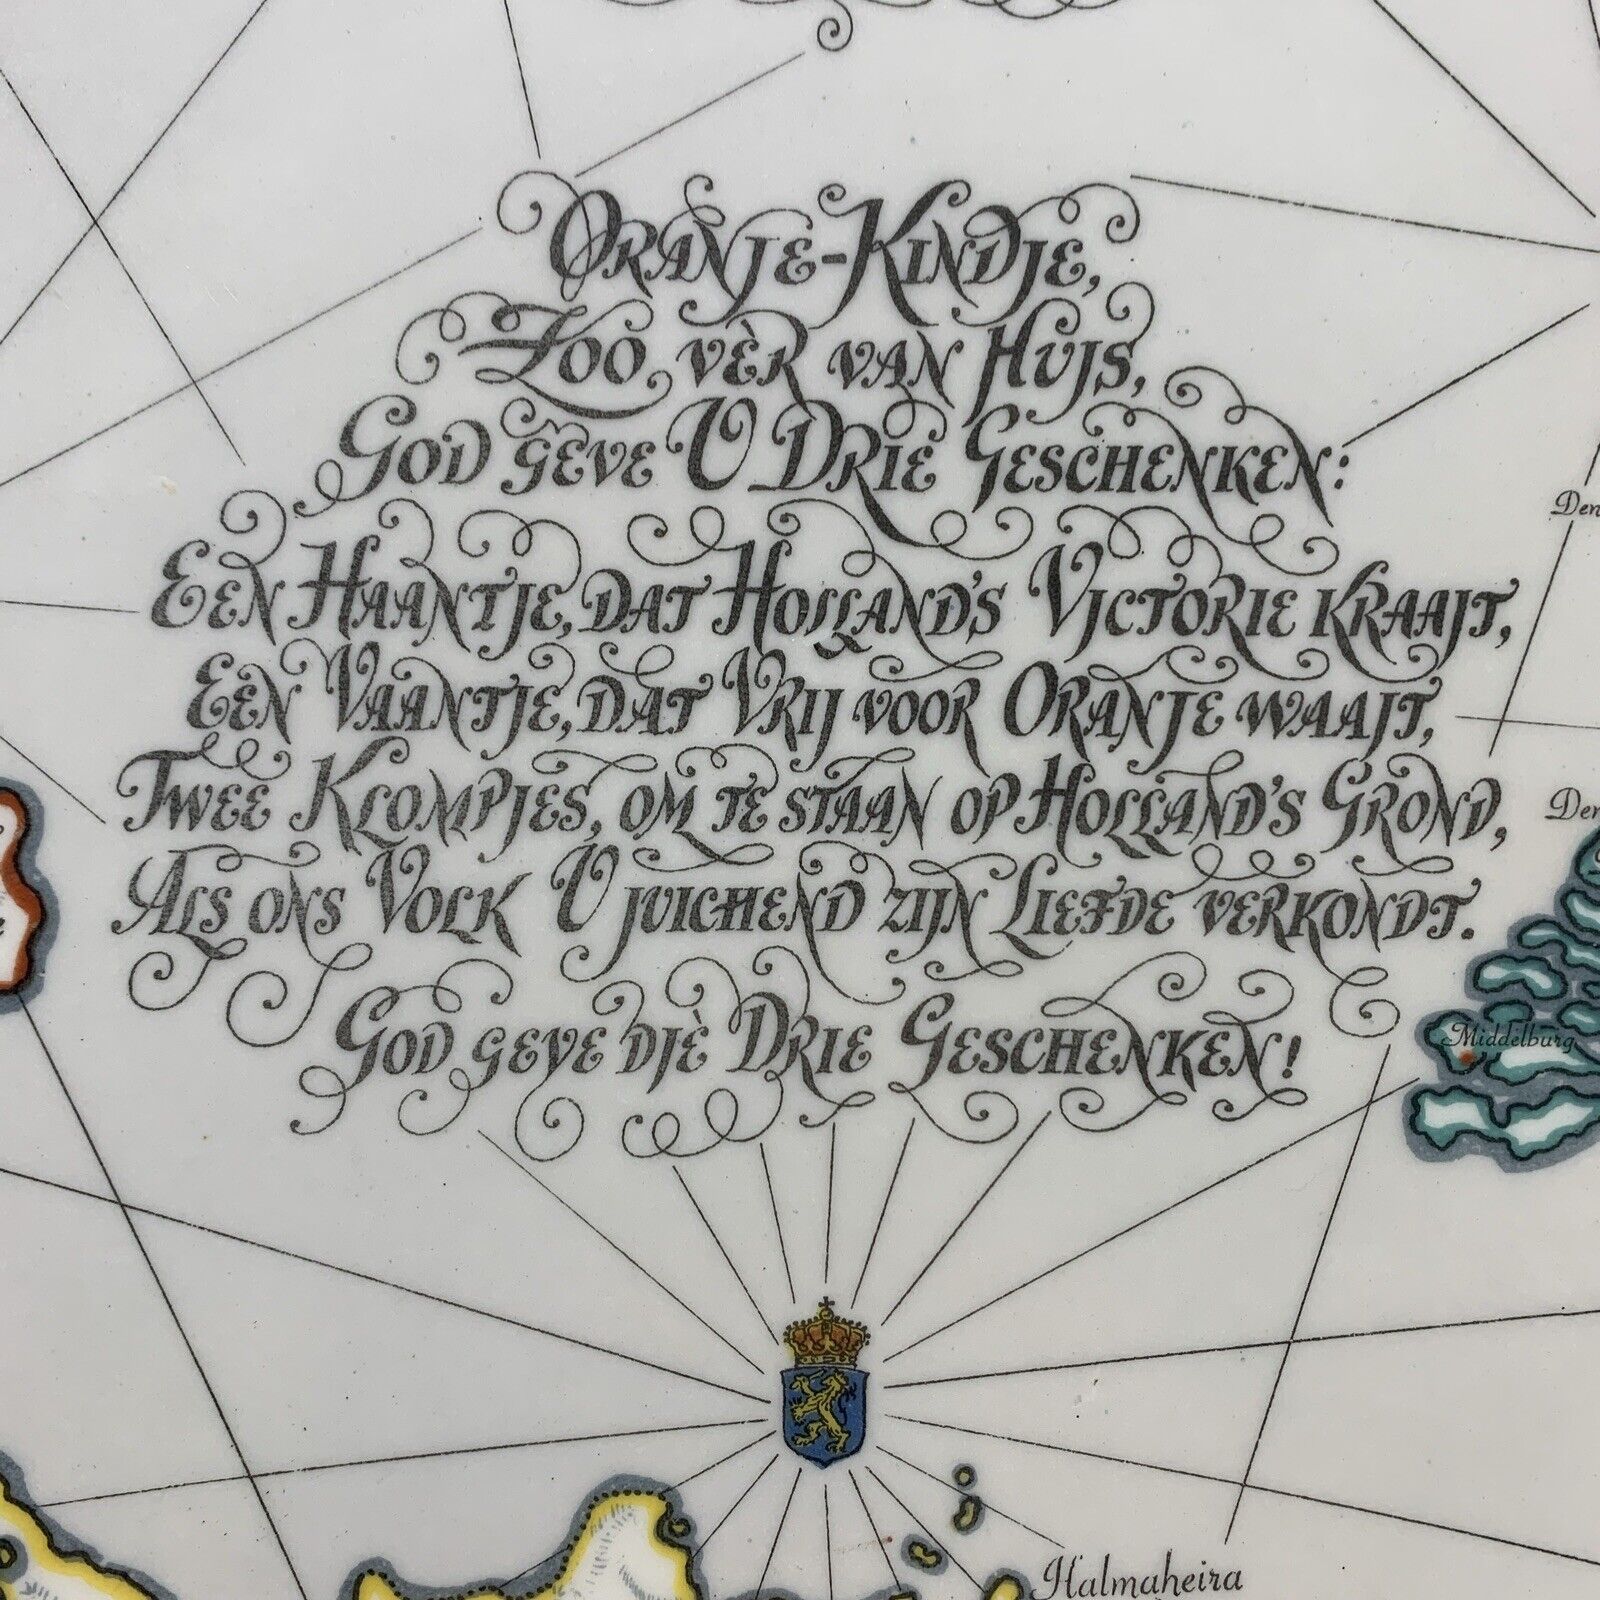 Oranje-Kindje,
Zoo vèr van Huis,
God geve U Drie Geschenken:
Een Haantje, dat Holland's Victorie kraait,
Een Vaantje, dat Vrij voor Oranje waait,
Twee Klompjes, om te staan op Holland's Grond,
Als ons Volk U juichend zijn Liefde verkondt.
God geve diè Drie Geschenken!
Den
Den
Middelburg
Halmaheira